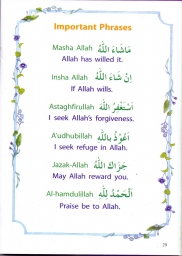 Important Phrases
Masha Allah مَاشَاءَ اللّٰهُ
Allah has willed it.
Insha Allah إِنْ شَاءَ اللّٰهُ
If Allah wills.
Astaghfirullah أَسْتَغْفِرُ اللّٰهَ
I seek Allah's forgiveness.
A'udhubillah أَعُوْذُ بِاللّٰهِ
I seek refuge in Allah.
Jazak-Allah جَزَاكَ اللّٰهُ
May Allah reward you.
Al-hamdulillah اَلْحَمْدُ لِلّٰهِ
Praise be to Allah.
29